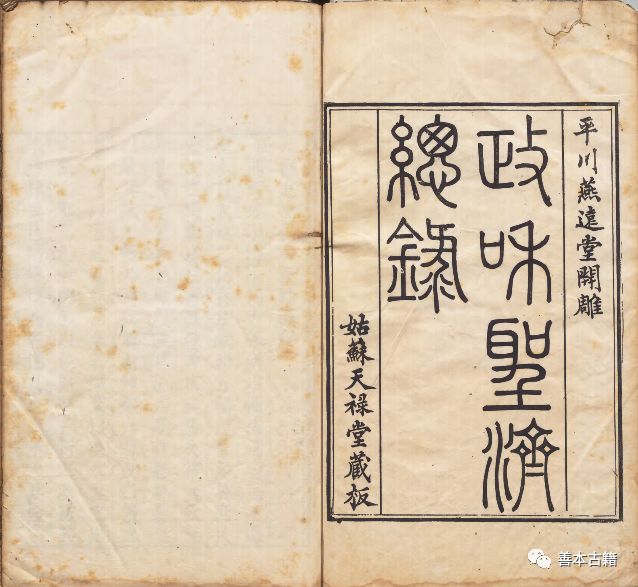 平川燕遠堂開雕
政和聖濟
總錄
姑蘇天祿堂藏板
善本古籍